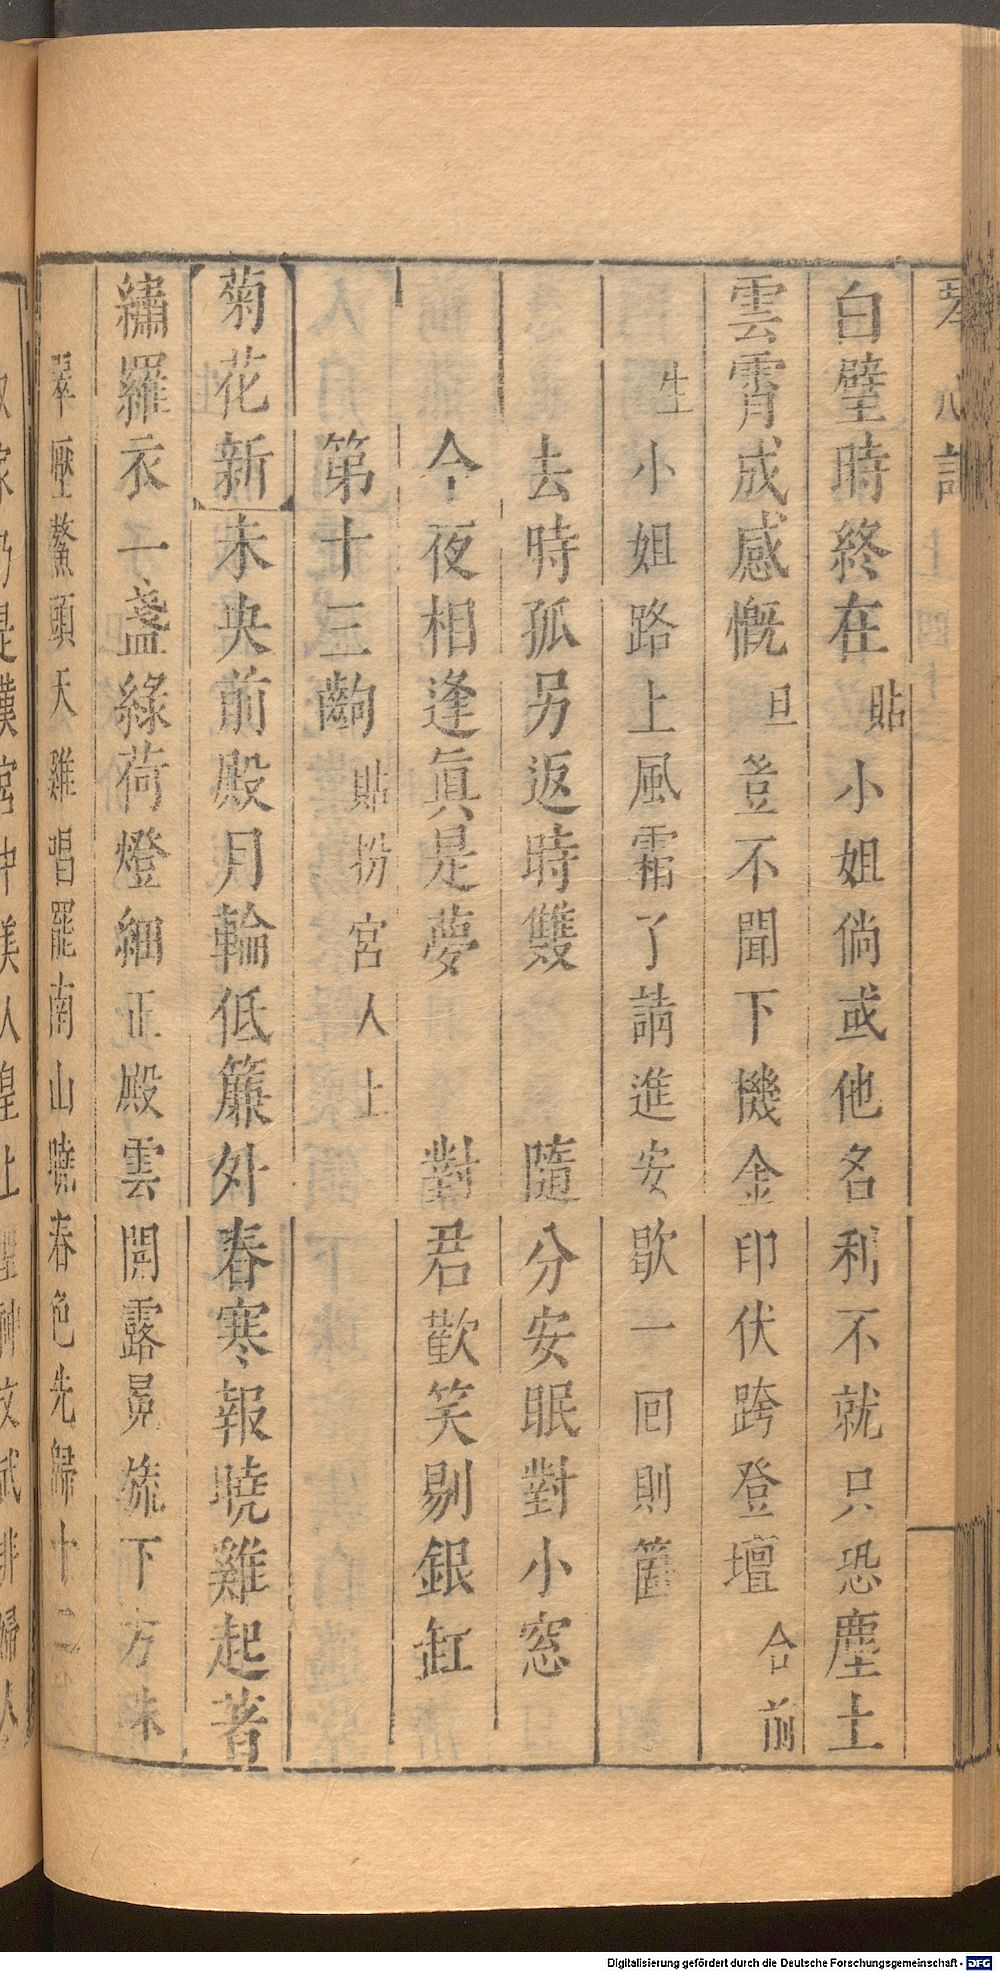 琴心記
上 四十
白璧時終在貼小姐倘或他名利不就只恐塵土
雲霄成感慨旦豈不聞下機金印伏跨登壇合前
生小姐路上風霜了請進安歇一回則箇
去時孤另返時雙 隨分安眠對小窓
今夜相逢眞是夢 對君歡笑剔銀缸
第十三齣貼扮宮人上
菊花新未央前殿月輪低簾外春寒報曉雞起著
繡羅衣一盞綠荷燈細正殿雲開露冕旒下方珠
翠壓鰲頭天雞唱罷南山曉春色先歸十二
家乃是漢宮中美人 上 文武 歸
Digitalisierung gefördert durch die Deutsche Forschungsgemeinschaft - DFG